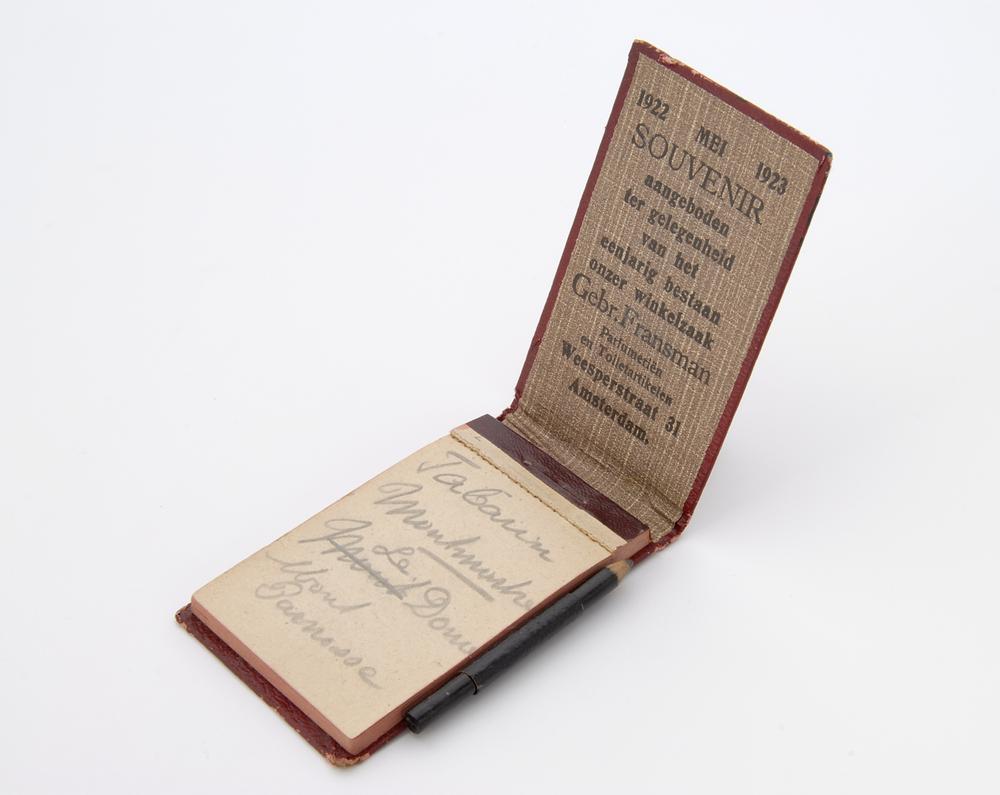 1922 MEI 1923
SOUVENIR
aangeboden
ter gelegenheid
van het
eenjarig bestaan
onzer winkelzaak
Gebr. Fransman
Parfumeriën
en Toiletartikelen
Weesperstraat 31
Amsterdam.
Tabarin
Montmartre
Le
Mont
Parnasse